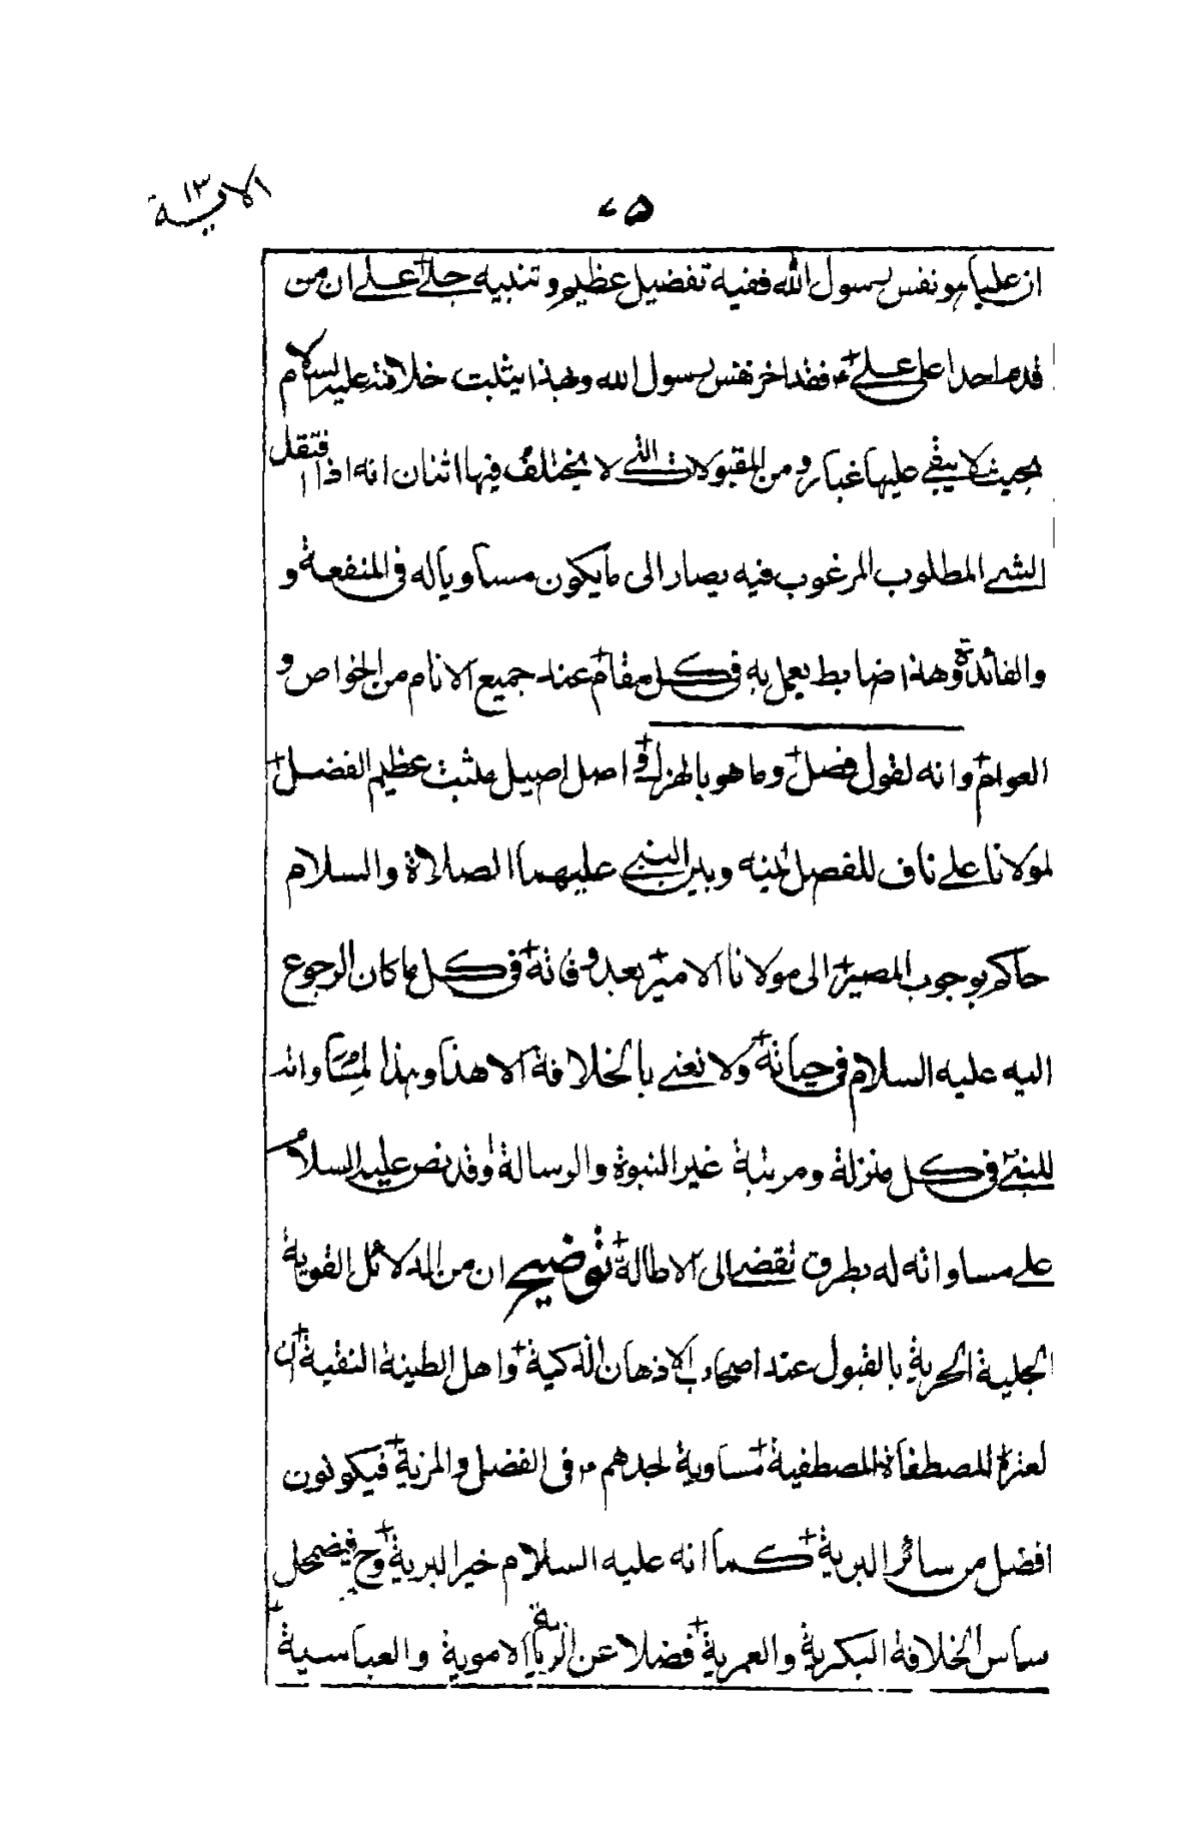 ٧٥
الاية ١٣
ان عليا هو نفس رسول الله ففيه تفضيل عظيم و تنبيه جلي على ان من
قدم احدا على علي ع فقد اخر نفس رسول الله وبهذا يثبت خلافته عليه السلام
بحيث لا يبقى عليها غبار و من المقبولات التي لا يختلف فيها اثنان انه اذا انتقل
الشي المطلوب المرغوب فيه يصار الى ما يكون مساويا له فى المنفعة و
والفائدة وهذا ضابط يعمل به في كل مقام عند جميع الانام من الخواص و
العوام وانه لقول فصل وما هو بالهزل في اصل اصيل مثبت عظيم الفضل
لمولانا علي ناف للفصل بينه وبين النبي عليهما الصلاة والسلام
حاكم بوجوب المصير الى مولانا الامير بعد وفاته في كل ما كان الرجوع
اليه عليه السلام في حياته ولا نعني بالخلافة الا هذا وبهذا لمساواته
للنبي في كل منزلة ومرتبة غير النبوة والرسالة وقد نص عليه السلام
على مساواته له بطرق تفضى الى الاطالة توضيح ان من الدلائل القوية
الجلية الحرية بالقبول عند اصحاب الاذهان الذكية واهل الطينة النقية ان
لعترة المصطفاة المصطفية مساوية لجدهم ص في الفضل والمزية فيكونون
افضل من سائر البرية كما انه عليه السلام خير البرية وح فيضمحل
ساس الخلافة البكرية والعمرية فضلا عن الاموية والعباسية